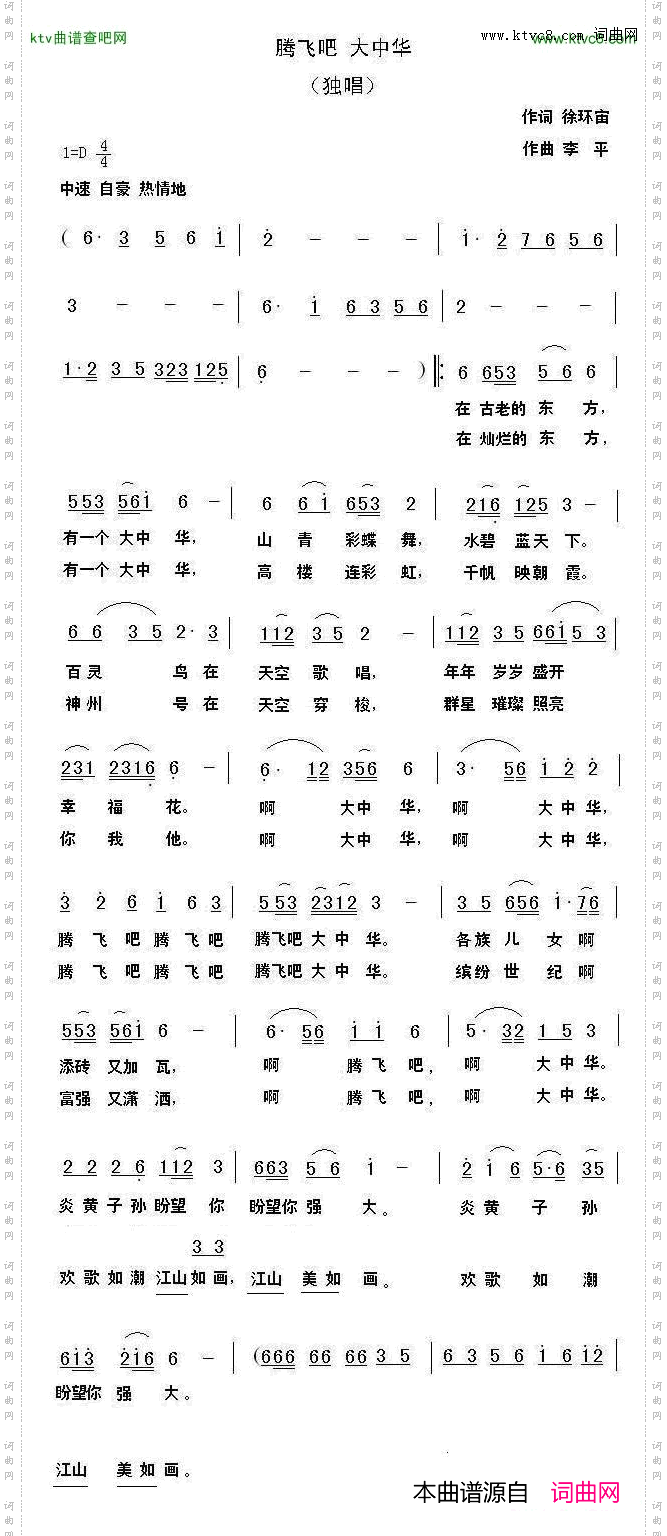 ktv曲谱查吧网
www.ktvc8.com 词曲网
腾飞吧 大中华
（独唱）
作词 徐环宙
1=D 4/4
作曲 李 平
中速 自豪 热情地
( 6· 3 5 6 1 | 2 - - - | 1· 2 7 6 5 6 |
3 - - - | 6· 1 6 3 5 6 | 2 - - - |
1·2 3 5 323 125 | 6 - - - ) ‖: 6 653 5 6 6 |
在 古老的 东 方，
在 灿烂的 东 方，
553 561 6 - | 6 6 1 653 2 | 216 125 3 - |
有一个 大中 华， 山 青 彩蝶 舞， 水碧 蓝天 下。
有一个 大中 华， 高 楼 连彩 虹， 千帆 映朝 霞。
6 6 3 5 2· 3 | 112 3 5 2 - | 112 3 5 661 5 3 |
百灵 鸟在 天空 歌 唱， 年年 岁岁 盛开
神州 号在 天空 穿 梭， 群星 璀璨 照亮
231 2316 6 - | 6· 12 356 6 | 3· 56 1 2 2 |
幸 福 花。 啊 大中 华， 啊 大 中 华，
你 我 他。 啊 大中 华， 啊 大 中 华，
3 2 6 1 6 3 | 553 2312 3 - | 3 5 656 1·76 |
腾 飞 吧 腾 飞 吧 腾飞吧 大 中 华。 各族 儿 女 啊
腾 飞 吧 腾 飞 吧 腾飞吧 大 中 华。 缤纷 世 纪 啊
553 561 6 - | 6· 56 1 1 6 | 5· 32 1 5 3 |
添砖 又加 瓦， 啊 腾 飞 吧， 啊 大 中 华。
富强 又潇 洒， 啊 腾 飞 吧， 啊 大 中 华。
2 2 2 6 112 3 | 663 5 6 1 - | 2 1 6 5·6 35 |
炎 黄 子 孙 盼望 你 盼望你 强 大。 炎 黄 子 孙
3 3
欢 歌 如 潮 江山 如 画， 江山 美 如 画。 欢 歌 如 潮
613 216 6 - | (666 66 66 3 5 | 6 3 5 6 1 6 12 |
盼望你 强 大。
江山 美 如 画。
本曲谱源自 词曲网
词曲网